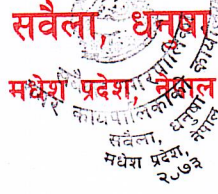 सवैला, धनुषा
मधेश प्रदेश, नेपाल
कार्यपालिकाको
सवैला, धनुषा
मधेश प्रदेश, नेपाल
२०७३